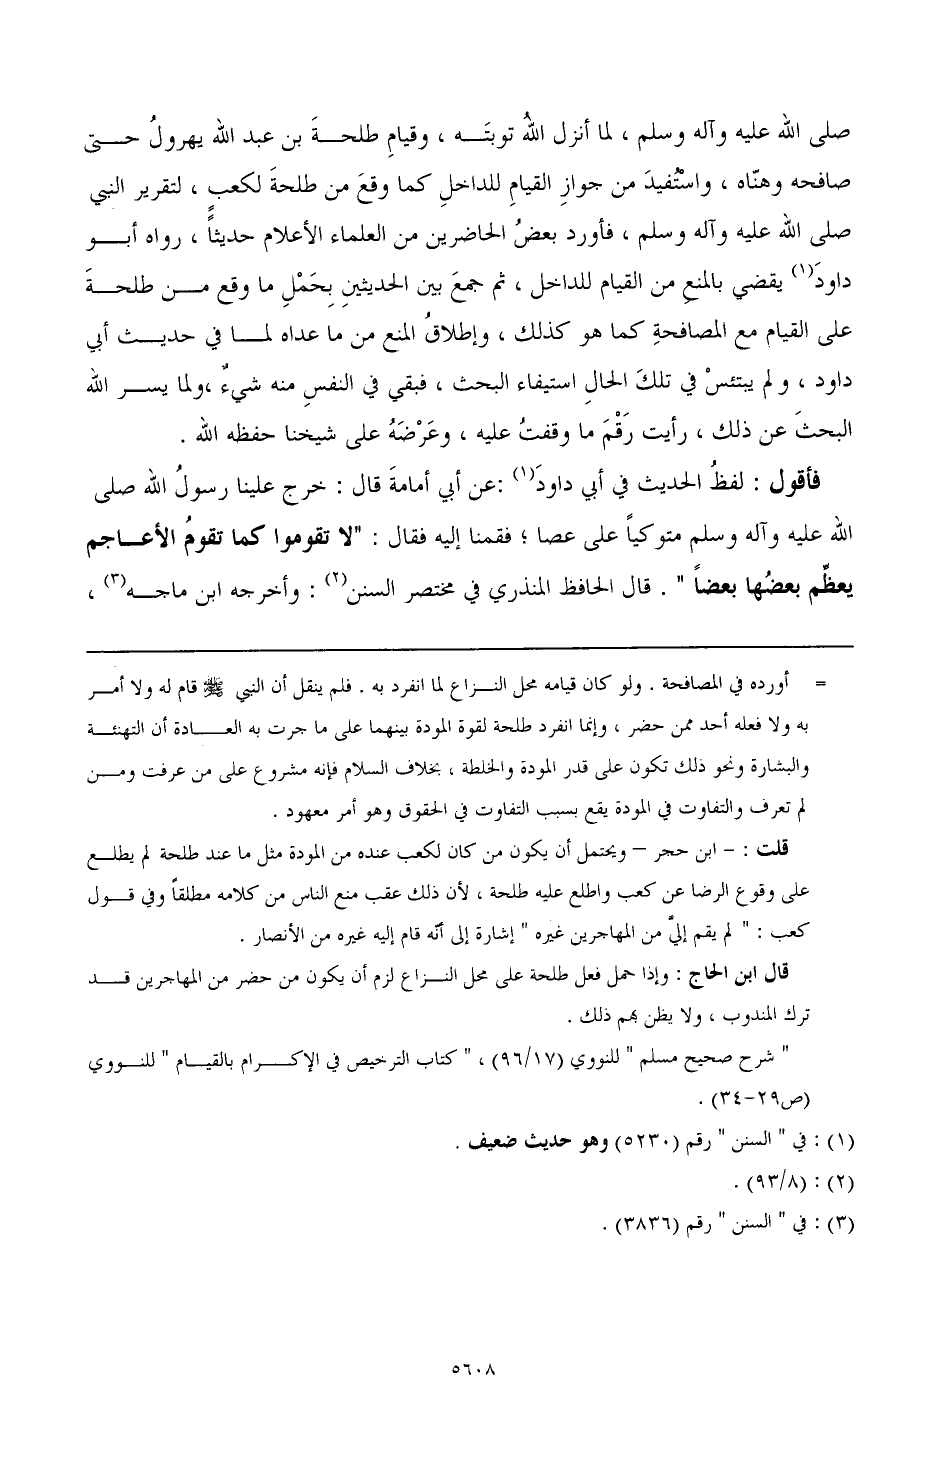 صلى الله عليه وآله وسلم ، لما أنزل اللهُ توبتَـه ، وقيامِ طلحـةَ بن عبد الله يهرولُ حـتى
صافحه وهنّاه ، واستُفيدَ من جوازِ القيامِ للداخلِ كما وقعَ من طلحةَ لكعبٍ ، لتقرير النبي
صلى الله عليه وآله وسلم ، فأورد بعضُ الحاضرين من العلماء الأعلام حديثاً ، رواه أبـو
داودَ(١) يقضي بالمنعِ من القيام للداخل ، ثم جمعَ بين الحديثينِ بِحَمْلِ ما وقع مـن طلحـةَ
على القيام مع المصافحةِ كما هو كذلك ، وإطلاقُ المنع من ما عداه لمـا في حديـث أبي
داود ، ولم يبتئسْ في تلكَ الحالِ استيفاء البحث ، فبقي في النفسِ منه شيءٌ ،ولما يسـر الله
البحثَ عن ذلك ، رأيت رَقْمَ ما وقفتُ عليه ، وعَرْضَهُ على شيخنا حفظه الله .
فأقول : لفظُ الحديث في أبي داودَ(١) :عن أبي أمامةَ قال : خرج علينا رسولُ الله صلى
الله عليه وآله وسلم متوكياً على عصا ؛ فقمنا إليه فقال : "لا تقوموا كما تقومُ الأعـاجم
يعظّم بعضُها بعضاً " . قال الحافظ المنذري في مختصر السنن(٢) : وأخرجه ابن ماجـه(٣) ،
= أورده في المصافحة . ولو كان قيامه محل النـزاع لما انفرد به . فلم ينقل أن النبي ﷺ قام له ولا أمـر
به ولا فعله أحد ممن حضر ، وإنما انفرد طلحة لقوة المودة بينهما على ما جرت به العـادة أن التهنئـة
والبشارة ونحو ذلك تكون على قدر المودة والخلطة ، بخلاف السلام فإنه مشروع على من عرفت ومـن
لم تعرف والتفاوت في المودة يقع بسبب التفاوت في الحقوق وهو أمر معهود .
قلت : – ابن حجر – ويحتمل أن يكون من كان لكعب عنده من المودة مثل ما عند طلحة لم يطلـع
على وقوع الرضا عن كعب واطلع عليه طلحة ، لأن ذلك عقب منع الناس من كلامه مطلقاً وفي قـول
كعب : " لم يقم إليَّ من المهاجرين غيره " إشارة إلى أنّه قام إليه غيره من الأنصار .
قال ابن الحاج : وإذا حمل فعل طلحة على محل النـزاع لزم أن يكون من حضر من المهاجرين قـد
ترك المندوب ، ولا يظن بهم ذلك .
" شرح صحيح مسلم " للنووي (٩٦/١٧) ، " كتاب الترخيص في الإكـرام بالقيـام " للنـووي
(ص٢٩-٣٤) .
(١) : في " السنن " رقم (٥٢٣٠) وهو حديث ضعيف .
(٢) : (٩٣/٨) .
(٣) : في " السنن " رقم (٣٨٣٦) .
٥٦٠٨